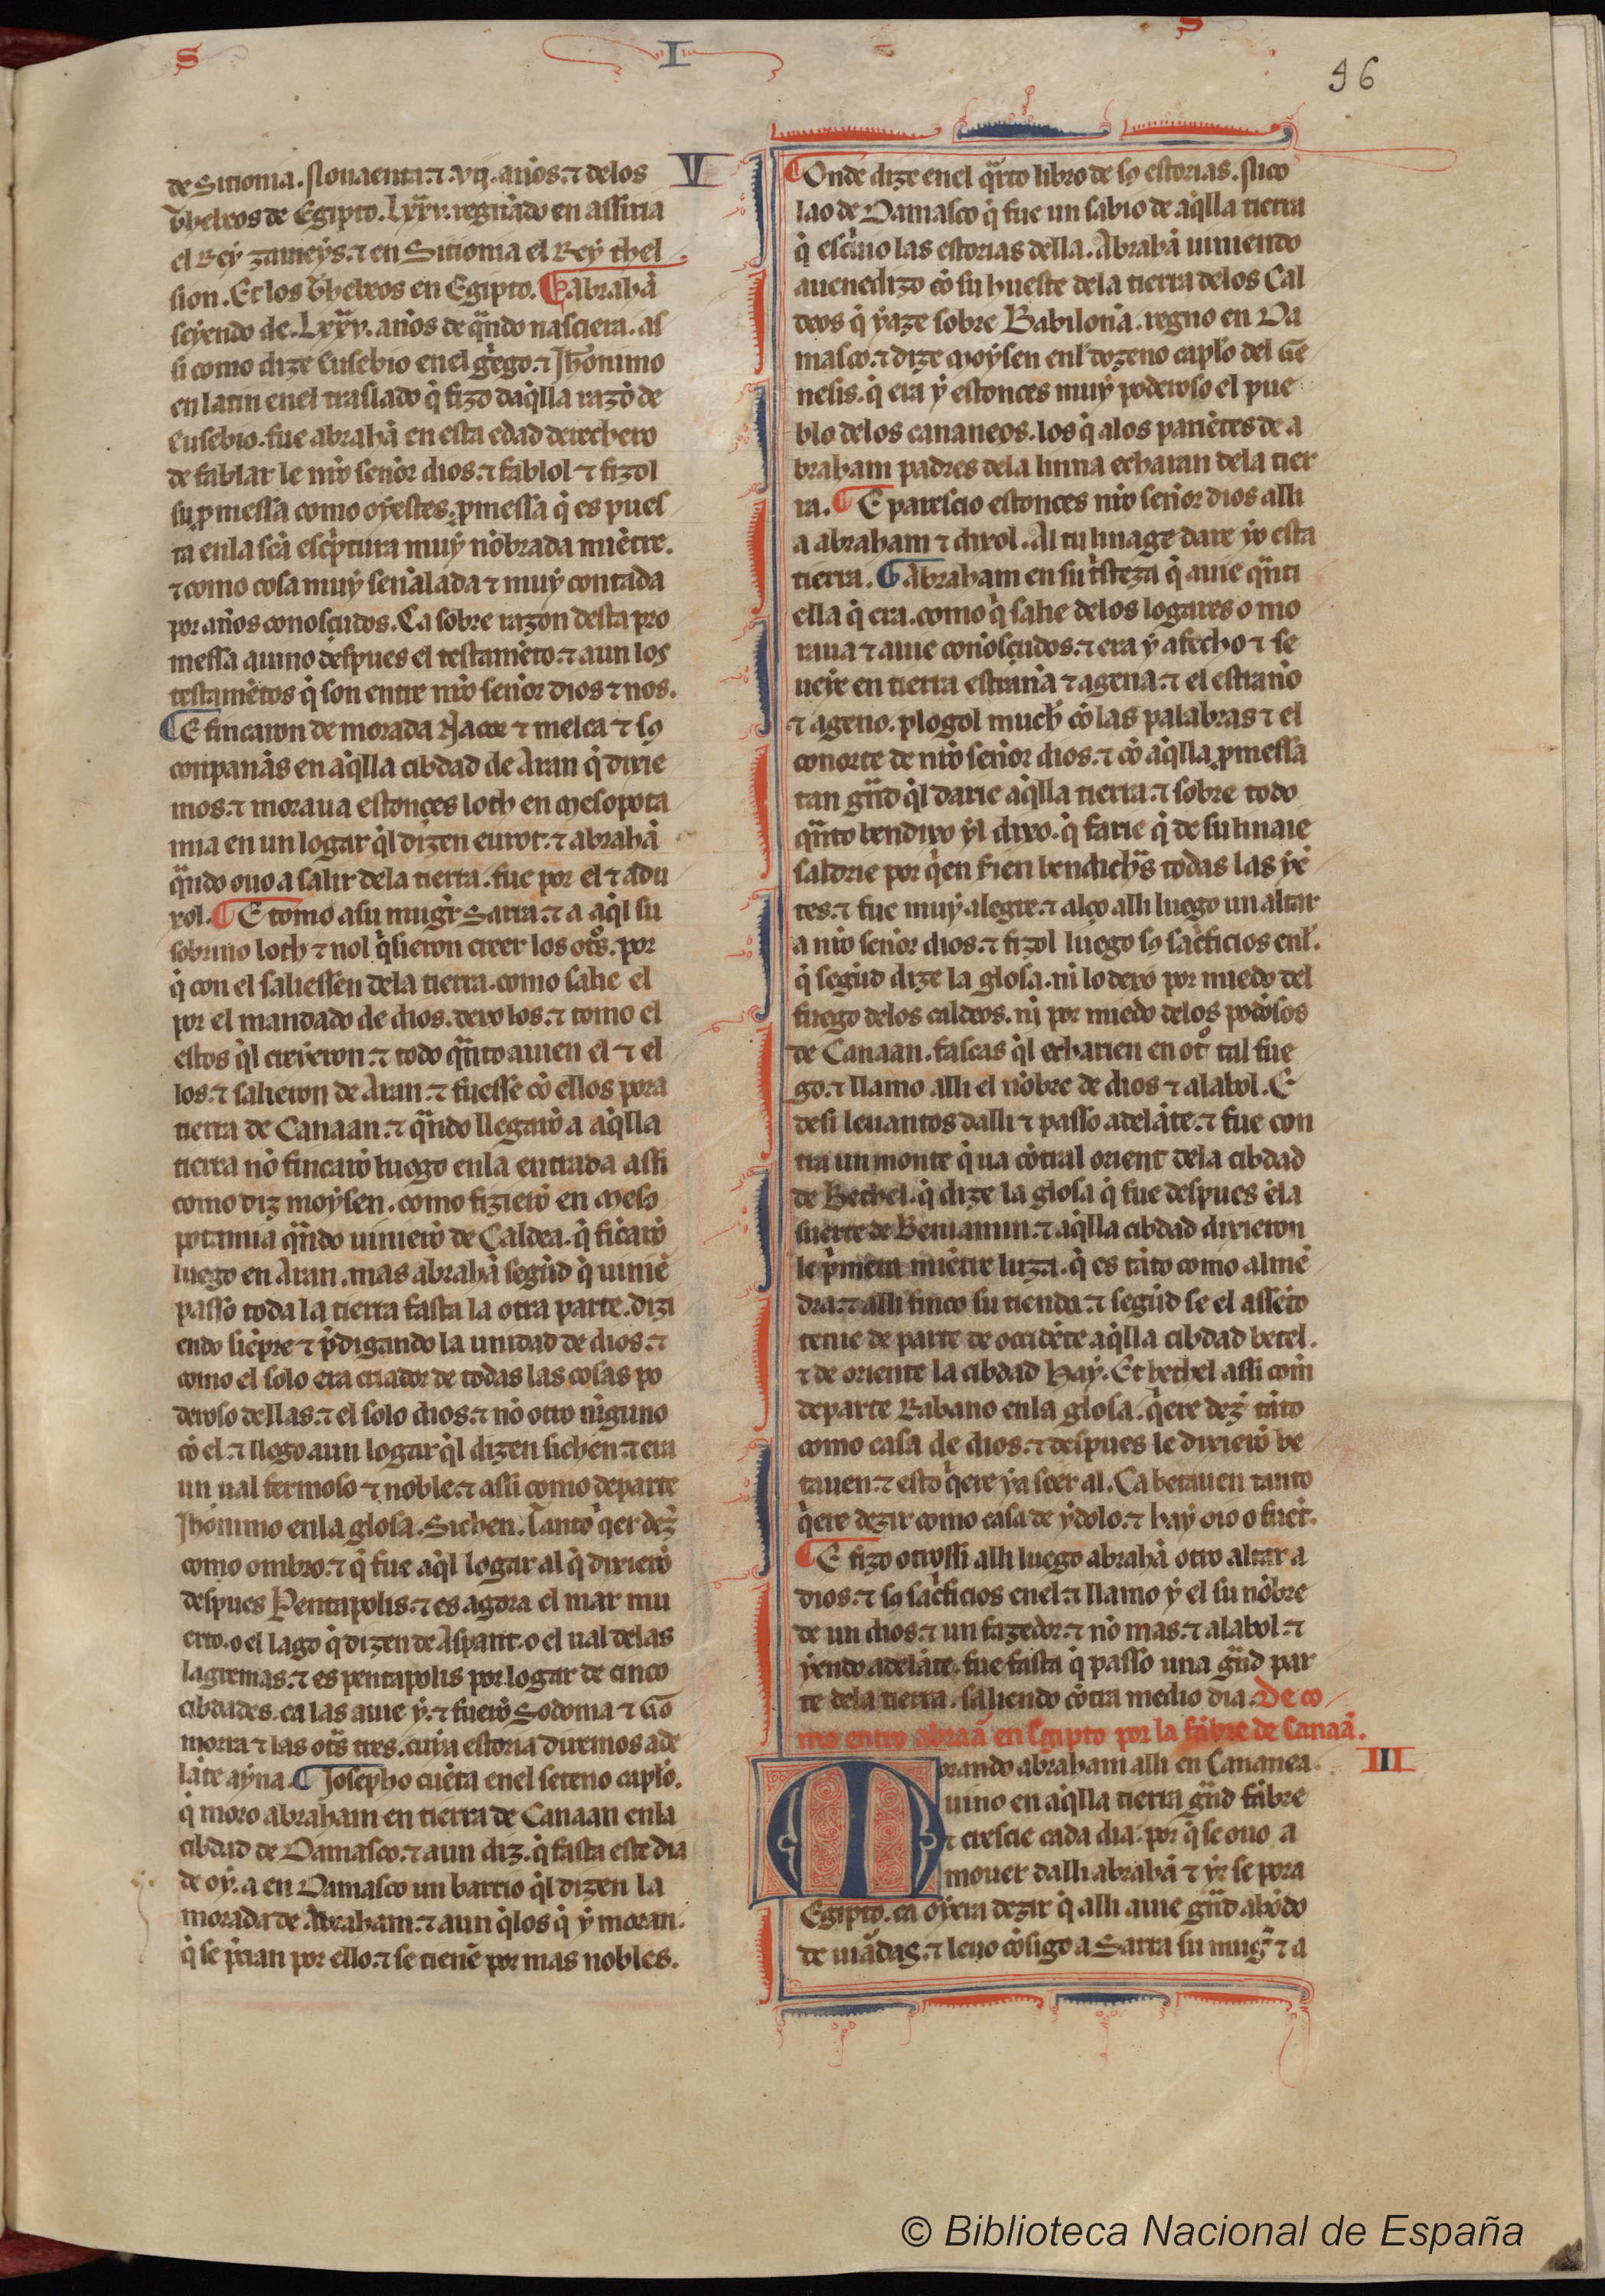 S I S
96
de Sitionia. Nouaenta. ⁊ .vij. annos. ⁊ delos
thebeos de Egipto. Lxxv. regnãdo en assiria
el Rey zameys. ⁊ en Sitionia el Rey thel
sion. Et los thebeos en Egipto. E abrahã
seyendo de. Lxxv. annos de qñdo nasciera. as
si como dize Eusebio en el gego. ⁊ Jhonimo
en latin en el traslado q̃ fizo daq̃lla razõ de
Eusebio. fue abrahã en esta edad derechero
de fablar le nr̃o sennor dios. ⁊ fablol ⁊ fizol
su pmessa como oyestes. pmessa q̃ es pues
ta enla scã escptura muy nõbrada miẽtre.
⁊ como cosa muy sennalada ⁊ muy contada
por annos conosçudos. Ca sobre razon desta pro
messa auino despues el testamẽto. ⁊ aun los
testamẽtos q̃ son entre nr̃o sennor dios ⁊ nos.
E fincaron de morada Nacor ⁊ melca ⁊ sus
conpannas en aq̃lla cibdad de Aran q̃ dixie
mos. ⁊ moraua estonçes loth en Mesopota
mia en un logar q̃l dizen eurot. ⁊ abrahã
qñdo ouo a salir dela tierra. fue por el ⁊ adu
xol. E tomo asu mugr̃ Sarra. ⁊ a aq̃l su
sobrino loth ⁊ nol q̃sieron creer los otõs. por
q̃ con el saliessen dela tierra. como salie el
por el mandado de dios. dexo los. ⁊ tomo el
estos q̃l creyeron. ⁊ todo qñto auien el ⁊ el
los. ⁊ salieron de Aran. ⁊ fuesse cõ ellos pora
tierra de Canaan. ⁊ qñdo llegarõ a aq̃lla
tierra nõ fincarõ luego enla entrada assi
como diz moysen. como fizierõ en Meso
potamia qñdo uinierõ de Caldea. q̃ ficarõ
luego en Aran. mas abrahã segũd q̃ uiniẽ
passo toda la tierra fasta la otra parte. dizi
endo siẽpre ⁊ p̃digando la unidad de dios. ⁊
como el solo era criador de todas las cosas po
deroso dellas. ⁊ el solo dios. ⁊ nõ otro nĩguno
cõ el. ⁊ llego aun logar q̃l dizen sichen. ⁊ era
un ual fermoso ⁊ noble. ⁊ assi como departe
Jhonimo enla glosa. Sichen. Tanto q̃er dez̃
como ombro. ⁊ q̃ fue aq̃l logar al q̃ dixierõ
despues Pentapolis. ⁊ es agora el mar mu
erto. o el lago q̃ dizen de Aspalt. o el ual delas
lagremas. ⁊ es pentapolis por logar de cinco
cibdades. ca las auie y. ⁊ fuerõ Sodoma ⁊ Go
morra ⁊ las otas tres. cuya estoria diremos ade
lãte ayna. Josepho cuẽta enel seteno capło.
q̃ moro abraham en tierra de Canaan enla
cibdad de Damasco. ⁊ aun diz. q̃ fasta este dia
de oy. a en Damasco un barrio q̃l dizen la
morada de Abraham. ⁊ aun q̃los q̃ y moran.
q̃ se pcian por ello. ⁊ se tienẽ por mas nobles.
VI
Onde dize enel q̃rto libro de sus estorias. Nico
lao de Damasco q̃ fue un sabio de aq̃lla tierra
q̃ escriuo las estorias della. Abrahã uiniendo
auenedizo cõ su hueste dela tierra delos Cal
deos q̃ yaze sobre Babilonia. regno en Da
masco. ⁊ dize Moysen enł dozeno capło del Ge
nesis. q̃ era y estonces muy poderoso el pue
blo delos cananeos. los q̃ alos pariẽtes de a
braham padres dela linna echaran dela tier
ra. E parescio estonces nr̃o sennor dios alli
a abraham ⁊ dixol. Al tu linage dare yo esta
tierra. Abraham en su tisteza q̃ auie qñti
ella q̃ era. como q̃ salie delos logares o mo
raua ⁊ auie connosçudos. ⁊ era y afecho ⁊ se
ueye en tierra estranna ⁊ agena. ⁊ el estranno
⁊ ageno. plogol much̃ cõ las palabras ⁊ el
conorte de nr̃o sennor dios. ⁊ cõ aq̃lla pmessa
tan gñd q̃l darie aq̃lla tierra. ⁊ sobre todo
qñto bendixo yl dixo. q̃ farie q̃ de su linaie
saldrie por q̃en serien bendichãs todas las yẽ
tes. ⁊ fue muy alegre. ⁊ alço alli luego un altar
a nr̃o sennor dios. ⁊ fizol luego sus sacficios enł.
q̃ segũd dize la glosa. ni lo dexo por miedo del
fuego delos caldeos. nj por miedo delos podõsos
de Canaan. fascas q̃l echarien en otõ tal fue
go. ⁊ llamo alli el nõbre de dios ⁊ alabol. E
desi leuantos dalli ⁊ passo adelãte. ⁊ fue con
tra un monte q̃ ua cõtral orient dela cibdad
de Bethel. q̃ dize la glosa q̃ fue despues ẽla
suerte de Beniamin. ⁊ aq̃lla cibdad dixieron
le pmera miẽtre luza. q̃ es tãto como almẽ
dra. ⁊ alli finco su tienda. ⁊ segũd se el assẽto
tenie de parte de occidẽte aq̃lla cibdad betel.
⁊ de oriente la cibdad Hay. Et bethel assi com
departe Rabano enla glosa. q̃ere dez̃ tãto
como casa de dios. ⁊ despues le dixierõ be
tauen. ⁊ esto q̃ere ya seer al. Ca betauen tanto
q̃ere dezir como casa de ydolo. ⁊ hay oio o fuet.
E fizo otrossi alli luego abrahã otro altar a
dios. ⁊ sus sacficios enel. ⁊ llamo y el su nõbre
de un dios. ⁊ un fazedor. ⁊ nõ mas. ⁊ alabol. ⁊
yendo adelãte. fue fasta q̃ passo una gñd par
te dela tierra. saliendo cõtra medio dia. De co
mo entro abraã en Egipto por la fãbre de Canaã.
III
Morando abraham alli en Cananea.
uino en aq̃lla tierra gñd fãbre
⁊ crescie cada dia. por q̃ se ouo a
mouer dalli abrahã ⁊ yr̃ se pora
Egipto. ca oyera dezir q̃ alli auie gñd abõdo
de uiãdas. ⁊ leuo cõsigo a Sarra su mug̃ ⁊ a
© Biblioteca Nacional de España